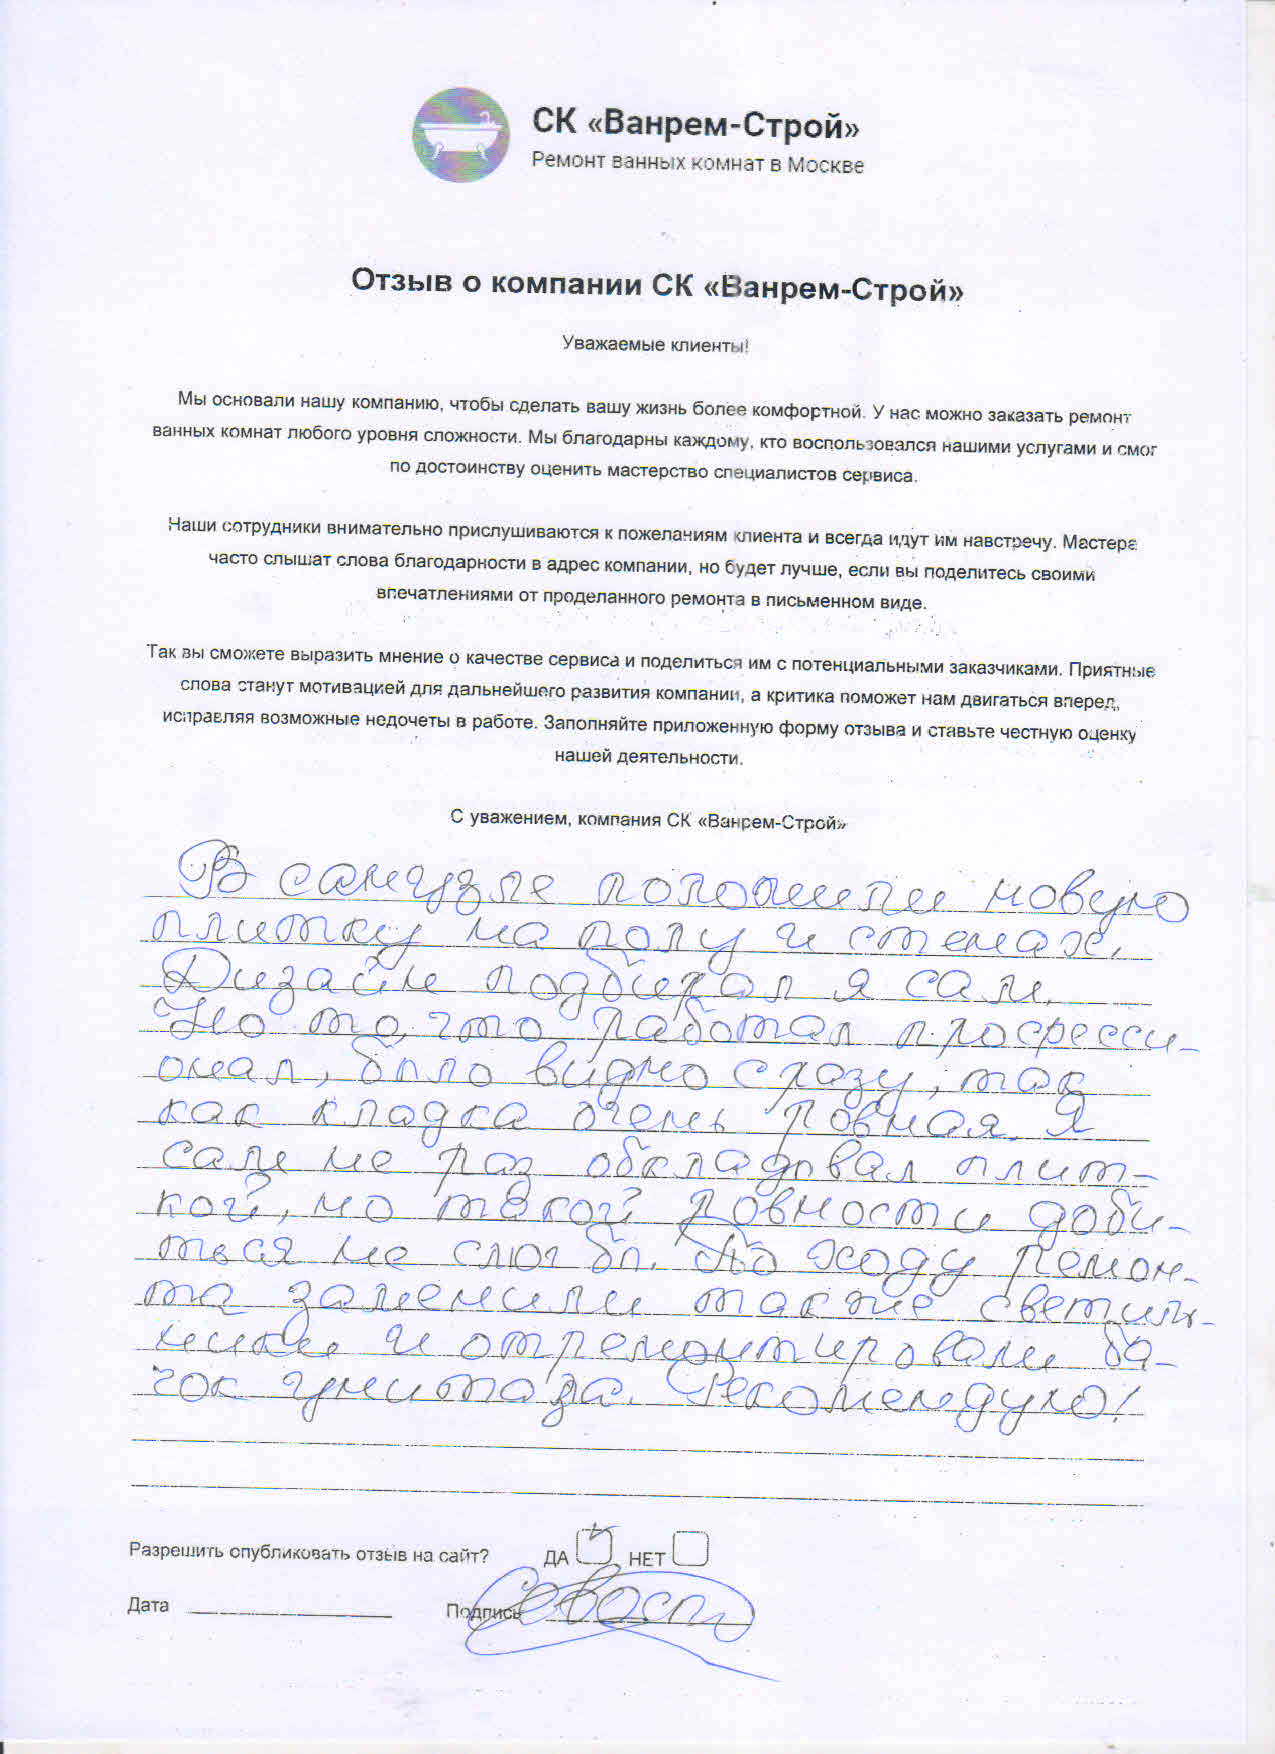 СК «Ванрем-Строй»
Ремонт ванных комнат в Москве
Отзыв о компании СК «Ванрем-Строй»
Уважаемые клиенты!
Мы основали нашу компанию, чтобы сделать вашу жизнь более комфортной. У нас можно заказать ремонт
ванных комнат любого уровня сложности. Мы благодарны каждому, кто воспользовался нашими услугами и смог
по достоинству оценить мастерство специалистов сервиса.
Наши сотрудники внимательно прислушиваются к пожеланиям клиента и всегда идут им навстречу. Мастера
часто слышат слова благодарности в адрес компании, но будет лучше, если вы поделитесь своими
впечатлениями от проделанного ремонта в письменном виде.
Так вы сможете выразить мнение о качестве сервиса и поделиться им с потенциальными заказчиками. Приятные
слова станут мотивацией для дальнейшего развития компании, а критика поможет нам двигаться вперед,
исправляя возможные недочеты в работе. Заполняйте приложенную форму отзыва и ставьте честную оценку
нашей деятельности.
С уважением, компания СК «Ванрем-Строй»
В санузле положили новую
плитку на полу и стенах.
Дизайн подбирал я сам.
Но то, что работал професси-
онал, было видно сразу, так
как кладка очень ровная. Я
сам не раз обкладовал плит-
кой, но такой ровности доби-
ться не смог бы. По ходу ремон-
та заменили также светиль-
ники и отремонтировали ба-
чок унитаза. Рекомендую!
Разрешить опубликовать отзыв на сайт? ДА НЕТ
Дата Подпись